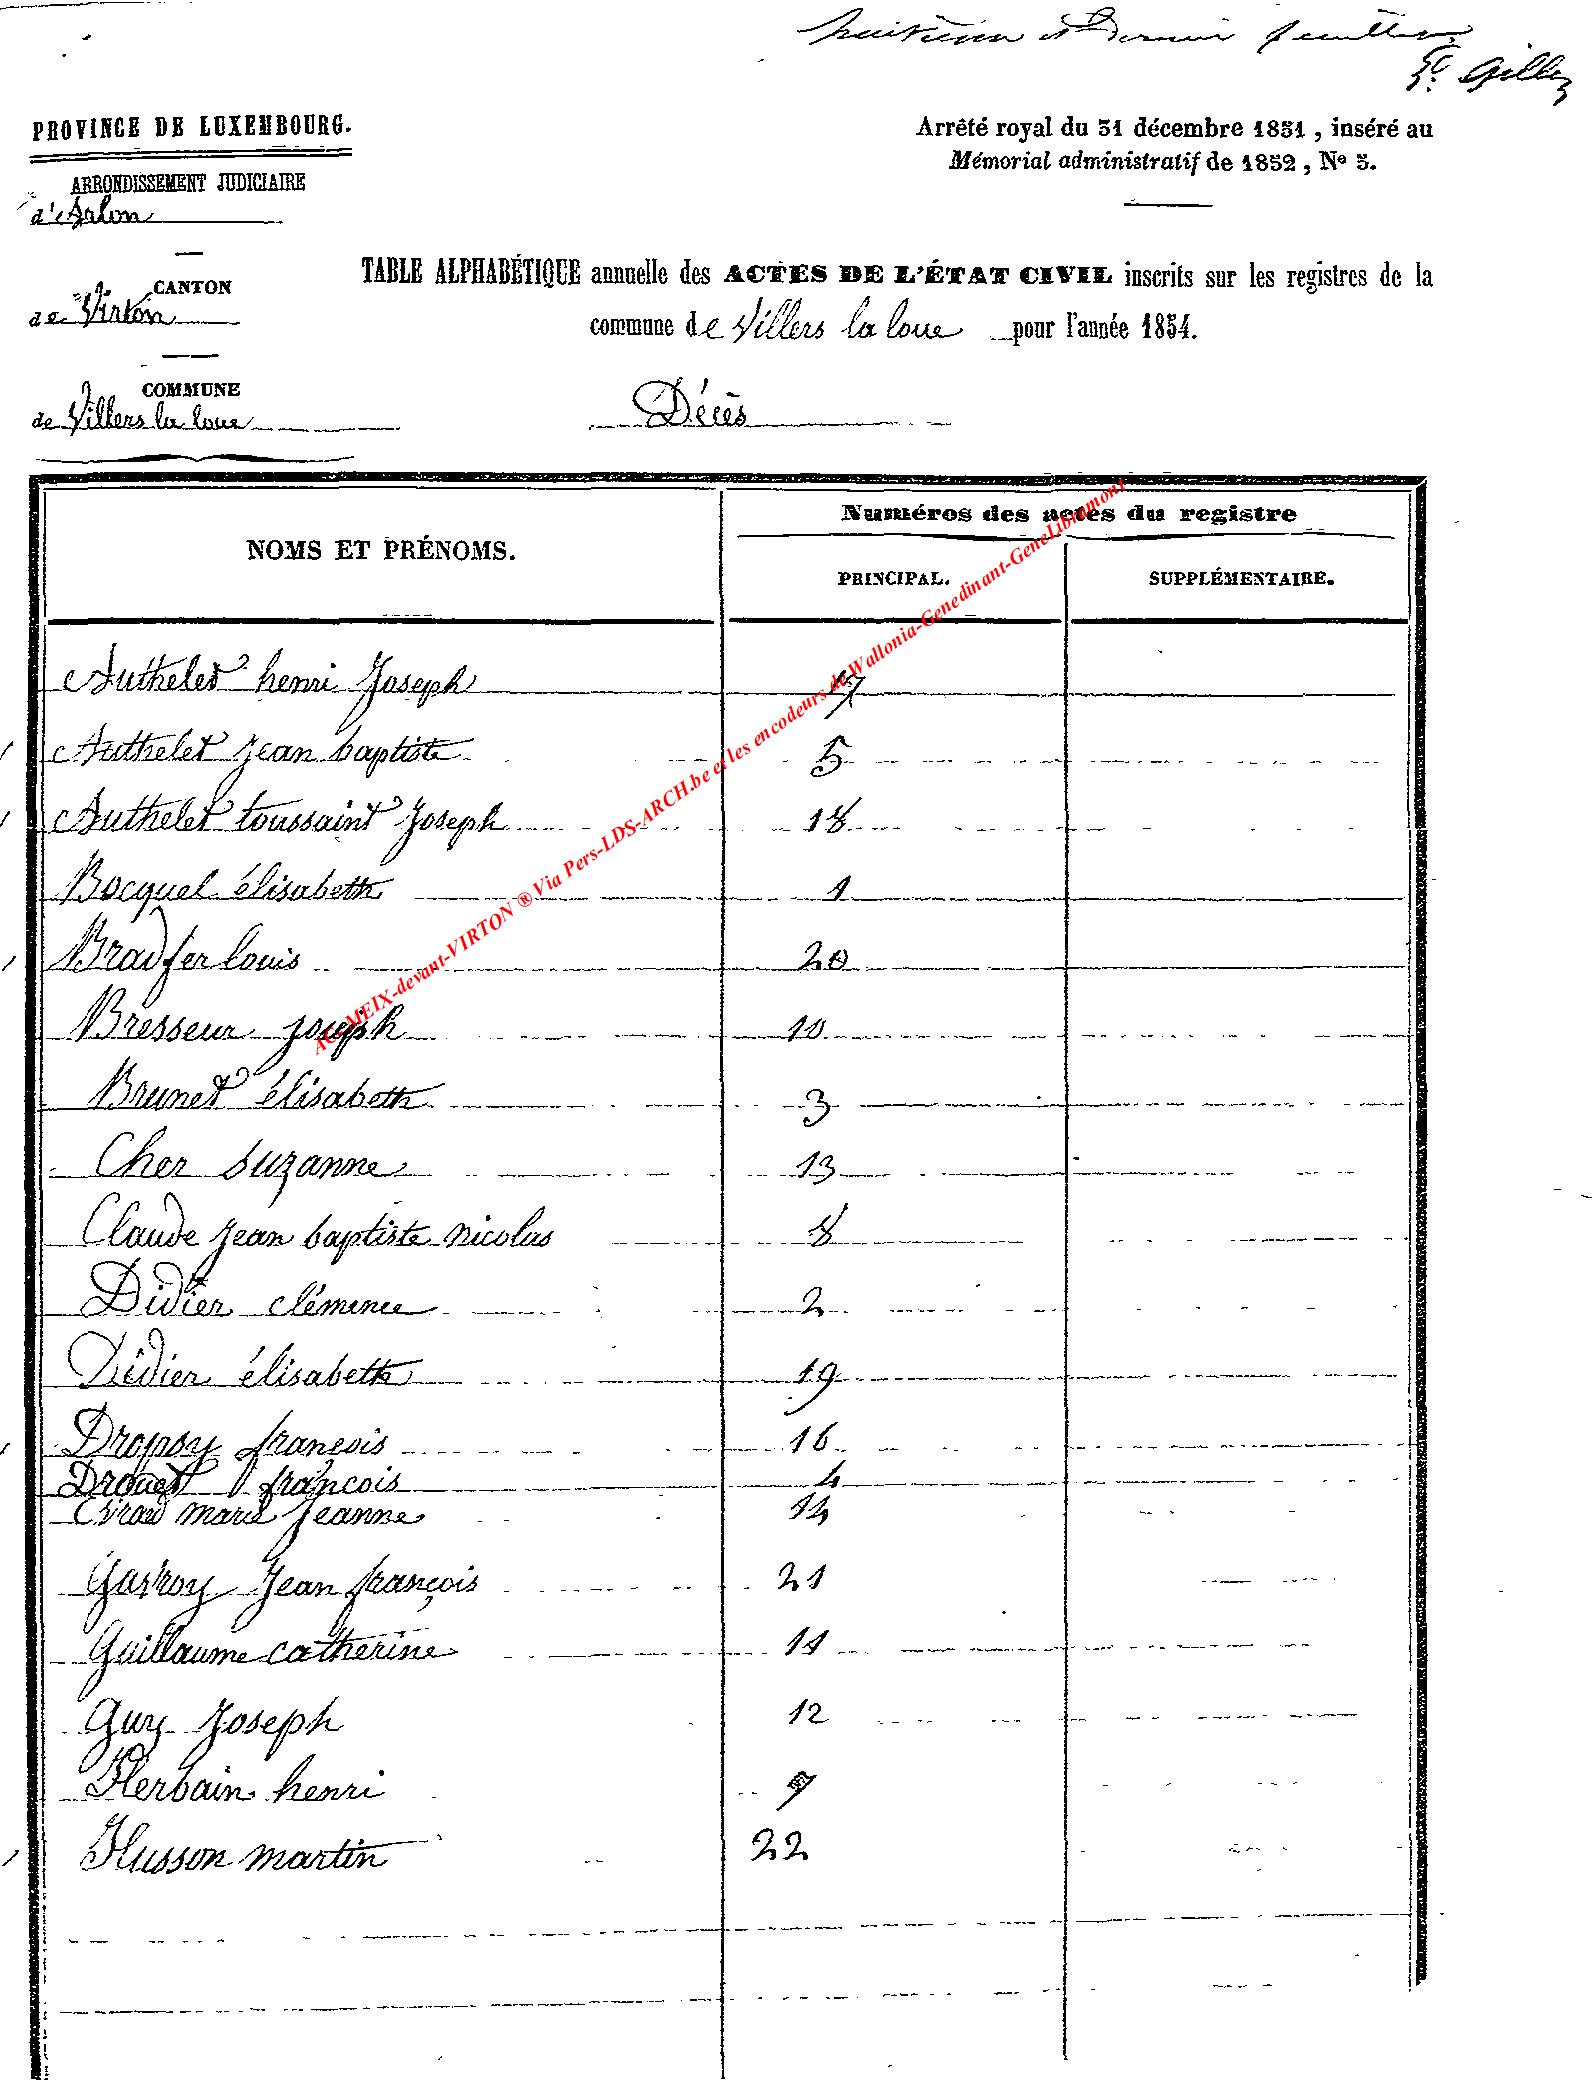 huitième et Dernier feuillet
Gillez
PROVINCE DE LUXEMBOURG.
ARRONDISSEMENT JUDICIAIRE
d'Arlon
CANTON
de Virton
COMMUNE
de Villers la loue
Arrêté royal du 31 décembre 1831, inséré au
Mémorial administratif de 1832, Nº 3.
TABLE ALPHABÉTIQUE annuelle des ACTES DE L'ÉTAT CIVIL inscrits sur les registres de la
commune de Villers la loue pour l'année 1854.
Décès
NOMS ET PRÉNOMS.
Numéros des actes du registre
PRINCIPAL.
SUPPLÉMENTAIRE.
Authelet henri Joseph
Authelet Jean baptiste 5
Authelet toussaint Joseph 18
Bocquel élisabeth 1
Bradfer louis 20
Bresseur joseph 10
Brunet élisabeth 3
Cher suzanne 13
Claude Jean baptiste nicolas 8
Didier clémence 2
Didier élisabeth 19
Dropsy françois 16
Drouet françois 4
Evrad marie Jeanne 14
Gavroy Jean françois 21
Guillaume catherine 11
Guy Joseph 12
Herbain henri
Husson martin 22
AC-MEIX-devant-VIRTON ® Via Pers-LDS-ARCH.be et les encodeurs de Wallonia-Genedinant-GeneLibramont